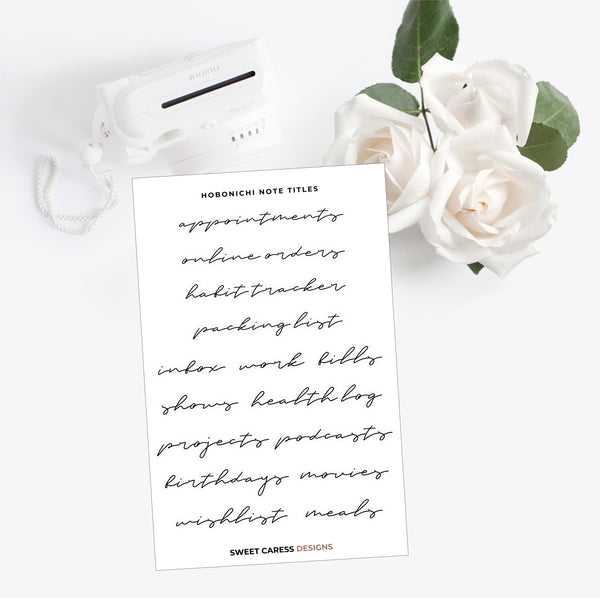 HOBONICHI NOTE TITLES
appointments
online orders
habit tracker
packing list
inbox work bills
shows health log
projects podcasts
birthdays movies
wishlist meals
SWEET CARESS DESIGNS